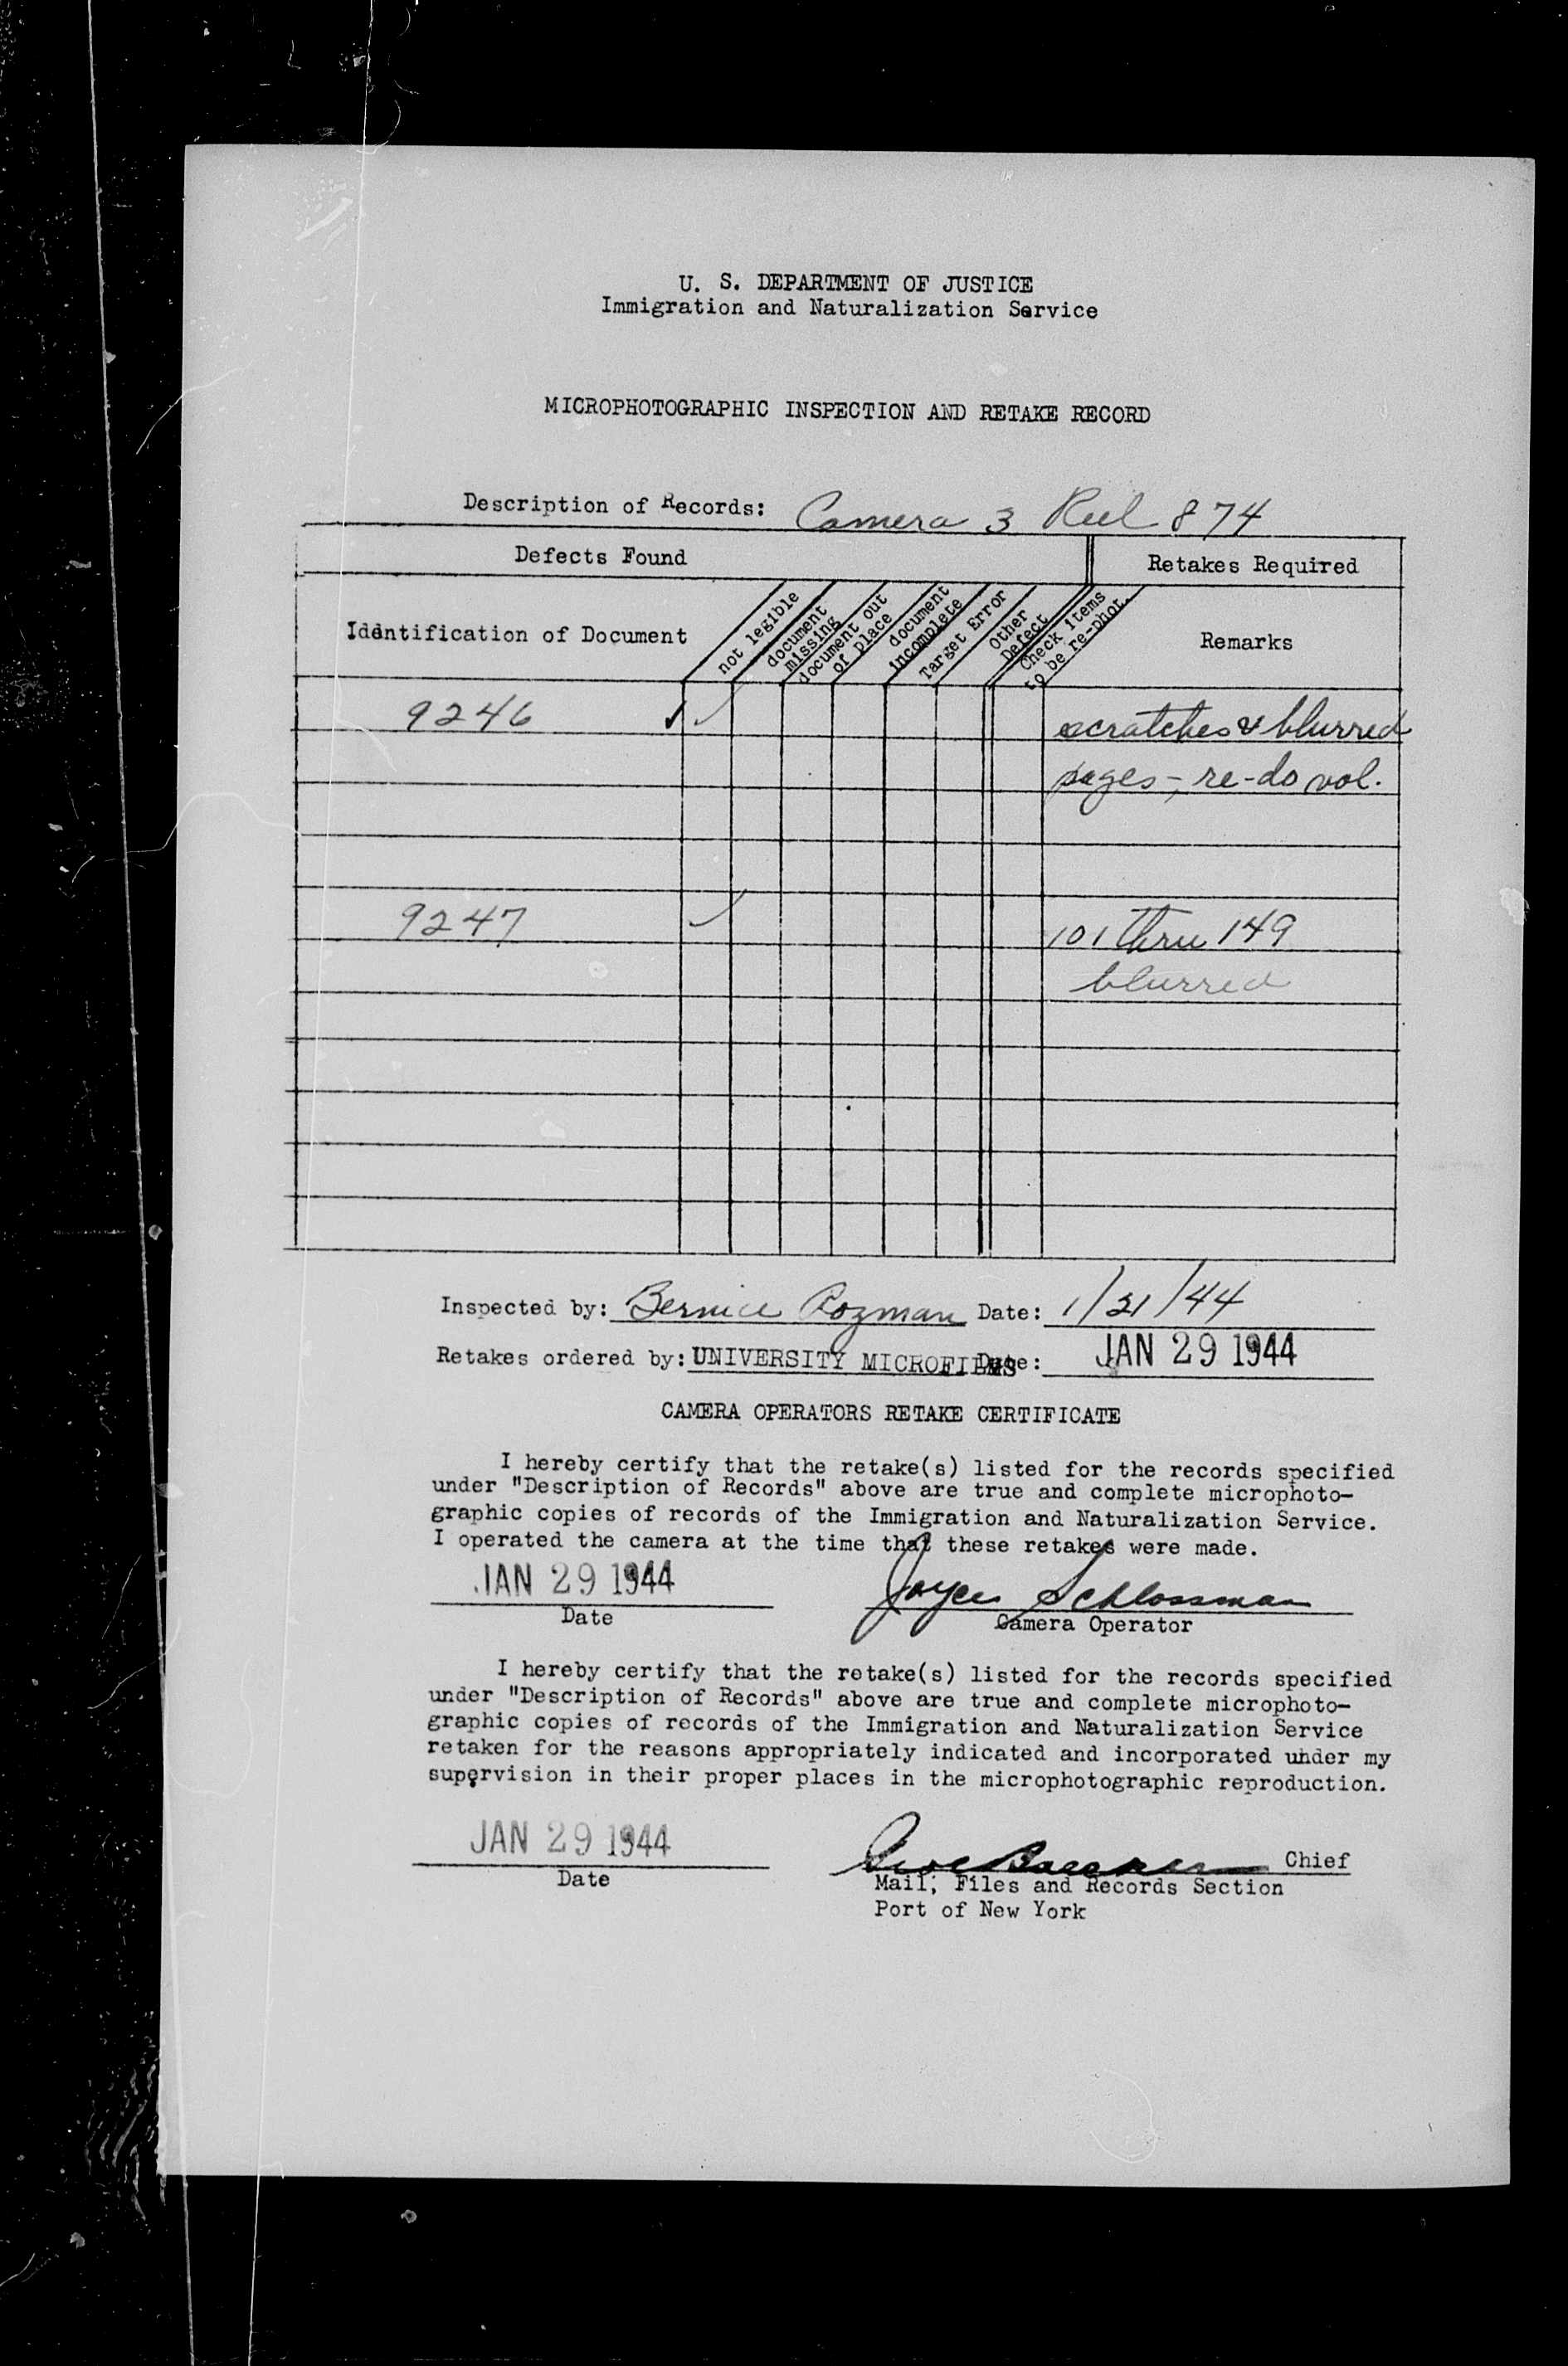 U. S. DEPARTMENT OF JUSTICE
Immigration and Naturalization Service
MICROPHOTOGRAPHIC INSPECTION AND RETAKE RECORD
Description of Records: Camera 3 Reel 874
Defects Found
Retakes Required
Identification of Document
not legible
document missing
document out of place
document incomplete
Target Error
Other Defect
Check items to be re-phot.
Remarks
9246 ✓ ✓ scratches & blurred
pages-, re-do vol.
9247 ✓ 101 thru 149
blurred
Inspected by: Bernice Rozman Date: 1/21/44
Retakes ordered by: UNIVERSITY MICROFILMS Date: JAN 29 1944
CAMERA OPERATORS RETAKE CERTIFICATE
I hereby certify that the retake(s) listed for the records specified
under "Description of Records" above are true and complete microphoto-
graphic copies of records of the Immigration and Naturalization Service.
I operated the camera at the time that these retakes were made.
JAN 29 1944 Joyce Schlossman
Date Camera Operator
I hereby certify that the retake(s) listed for the records specified
under "Description of Records" above are true and complete microphoto-
graphic copies of records of the Immigration and Naturalization Service
retaken for the reasons appropriately indicated and incorporated under my
supervision in their proper places in the microphotographic reproduction.
JAN 29 1944 Chief
Date Mail, Files and Records Section
Port of New York